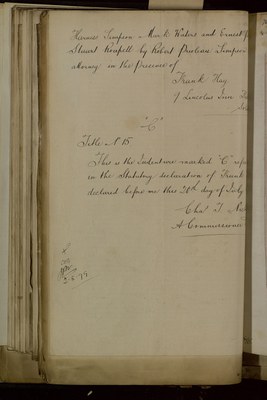 Horace Simpson Mark Waters and Ernest
Stuart by Robert Simpson
attorney in the presence of
Frank Hay
9 Lincolns Inn
"C"
Title No 15
This is the Indenture marked "C"
in the Statutory declaration of Frank
declared before me this 30th day of July
Chas T
A Commissioner